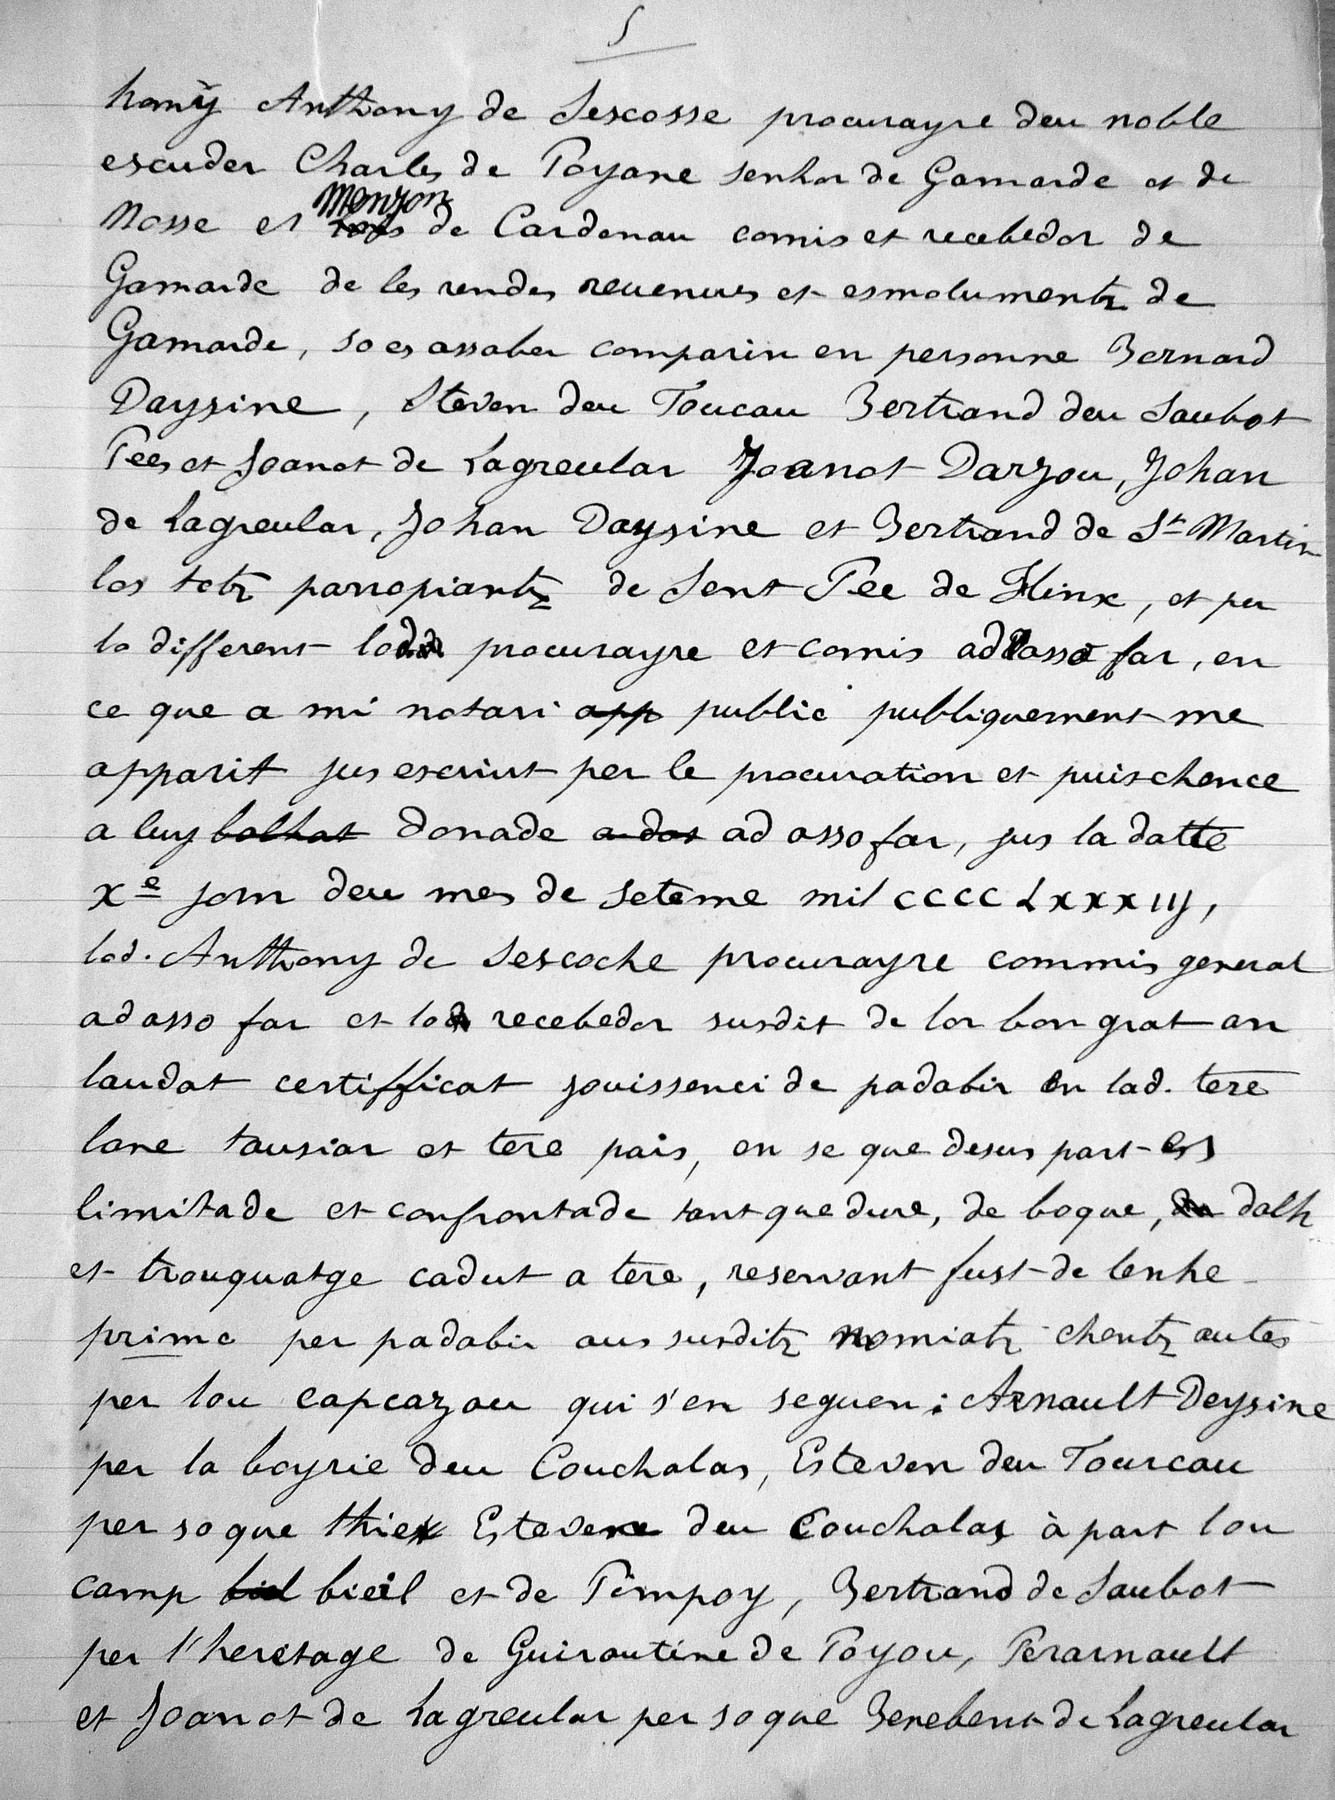 5
homÿ Anthony de Sescosse procurayre deu noble
escuder Charles de Poyane senhor de Gamarde et de
Nosse et Monjon de Cardenau comis et recebedor de
Gamarde de les rendes revenuus et esmolumentz de
Gamarde, so es assaber comparin en personne Bernard
Daysine, Steven deu Toucau Bertrand deu Saubot
Pees et Joanot de Lagreular Joanot Darjou, Johan
de Lagreular, Johan Daysine et Bertrand de St Martin
los totz parropiantz de Sent Pee de Hinx, et per
lo different procurayre et comis ad asso far, en
ce que a mi notari app public publiquement me
apparit jus escriut per le procuration et puischence
a luy balhat donade a dat ad asso far, jus la datte
Xe jorn deu mes de seteme mil CCCC LXXXIIJ,
lod. Anthony de Sescoche procurayre commis general
ad asso far et lod recebedor susdit de lor bon grat an
laudat certifficat jouissenci de padabir en lad. tere
lane tausiar et tere pais, en se que desus part es
limitade et confrontade tant que dure, de boque, dalh
et trouquatge cadut a tere, reservant fust de lenhe
prime per padabir aus susditz nomiatz chentz autes
per lou capcazau qui s'en seguen : Arnault Deysine
per la boyrie deu Couchalas, Esteven deu Tourcau
per so que thie Estevene deu Couchalas à part lou
camp biel bieil et de Pimpoy, Bertrand de Saubot
per l'heretage de Guiroutine de Poyou, Perarnault
et Joanot de Lagreular per so que Berebent de Lagreular